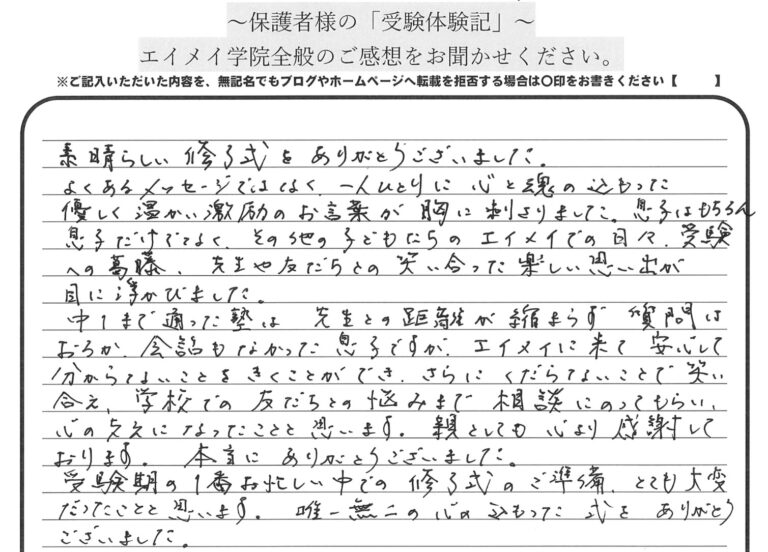 ～保護者様の「受験体験記」～
エイメイ学院全般のご感想をお聞かせください。
※ご記入いただいた内容を、無記名でもブログやホームページへ転載を拒否する場合は〇印をお書きください【　　】
素晴らしい修了式をありがとうございました。
よくあるメッセージではなく、一人ひとりに心と魂の込もった
優しく温かい激励のお言葉が胸に刺さりました。息子はもちろん
息子だけでなく、その他の子どもたちのエイメイでの日々、受験
への葛藤、先生や友だちとの笑い合った楽しい思い出が
目に浮かびました。
中1まで通った塾は先生との距離が縮まらず質問は
おろか、会話もなかった息子ですが、エイメイに来て安心して
分からないことをきくことができ、さらにくだらないことで笑い
合え、学校での友だちとの悩みまで相談にのってもらい、
心の支えになったことと思います。親としても心より感謝して
おります。本当にありがとうございました。
受験期の1番お忙しい中での修了式のご準備、とても大変
だったことと思います。唯一無二の心の込もった式をありがとう
ございました。